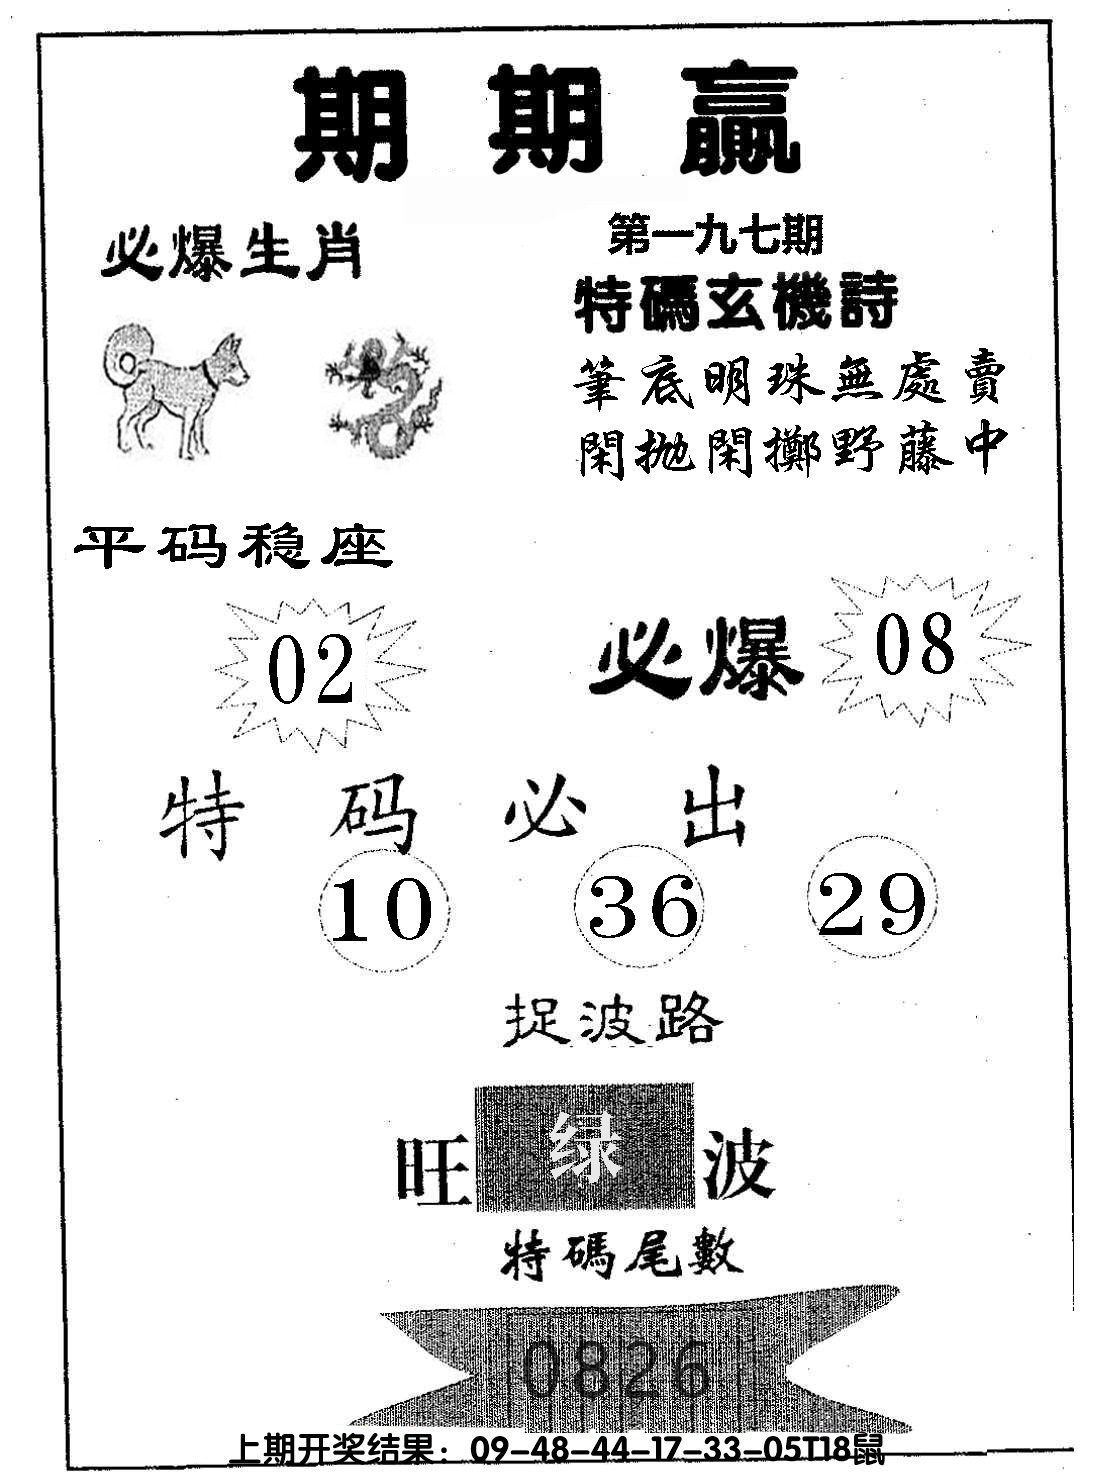 期期贏
必爆生肖
第一九七期
特碼玄機詩
筆底明珠無處賣
閑拋閑擲野藤中
平码稳座
02
必爆
08
特码必出
10 36 29
捉波路
旺绿波
特碼尾數
0826
上期开奖结果：09-48-44-17-33-05T18鼠